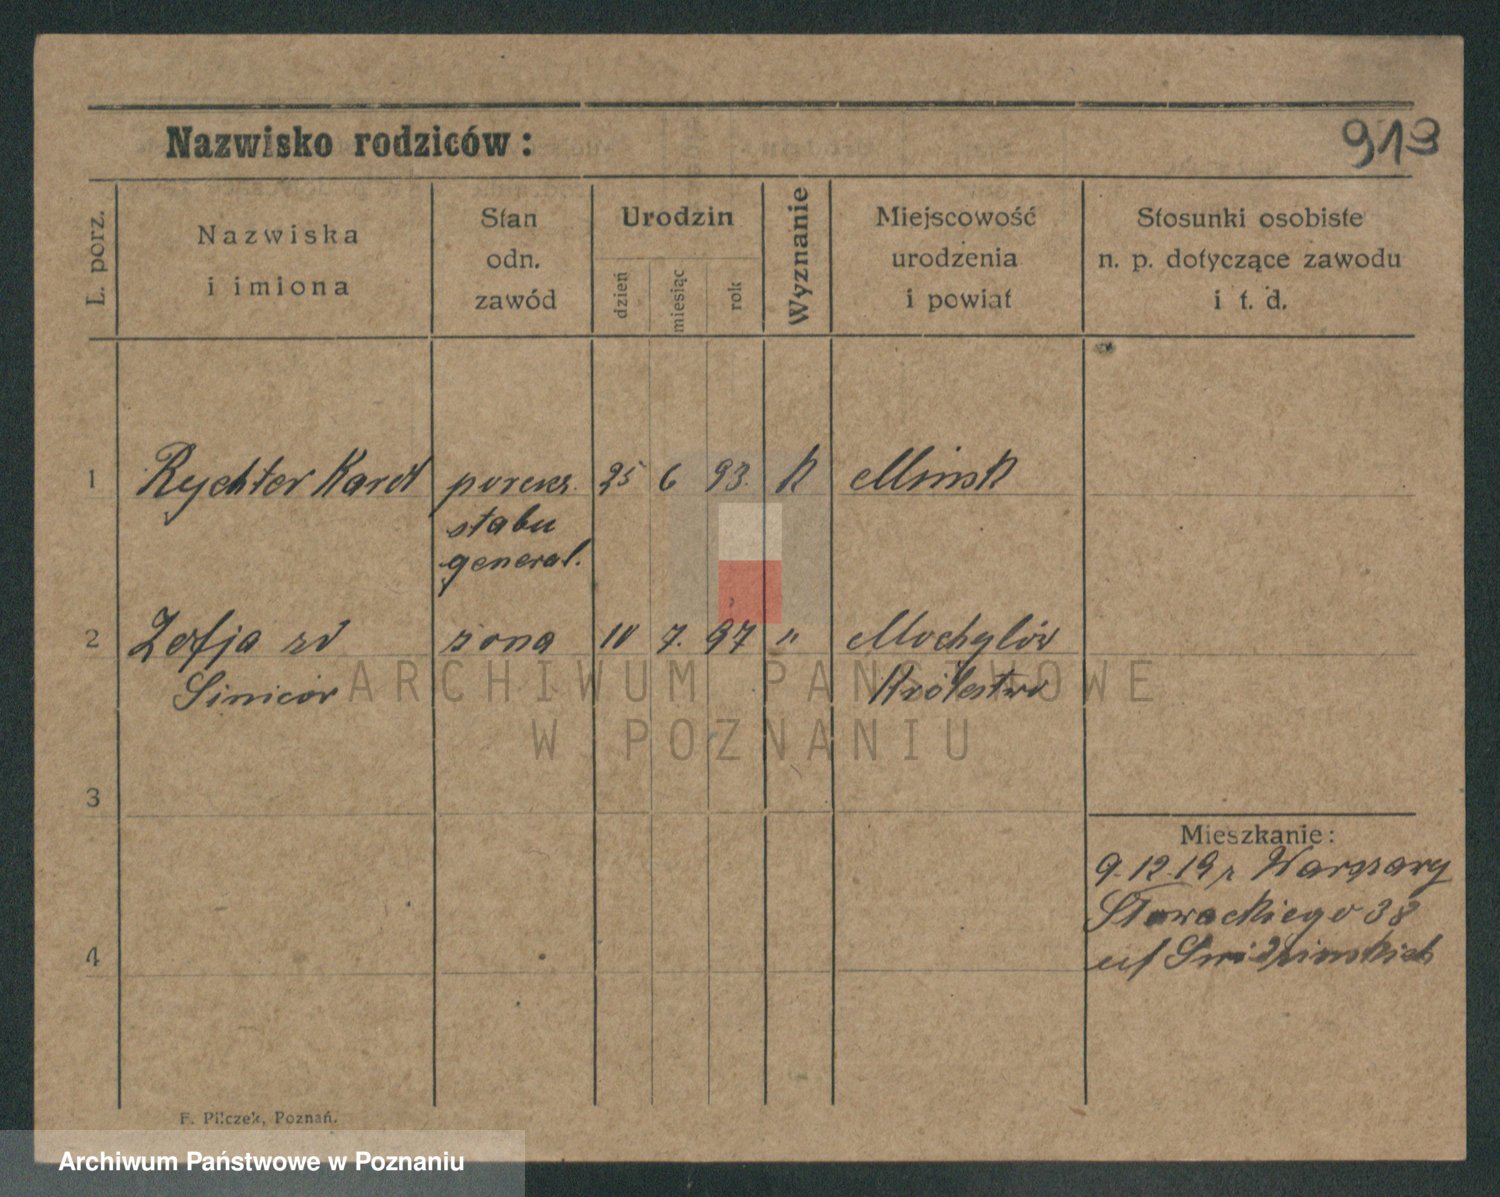 Nazwisko rodziców:
913
L. porz.
Nazwiska
i imiona
Stan
odn.
zawód
Urodzin
dzień
miesiąc
rok
Wyznanie
Miejscowość
urodzenia
i powiat
Stosunki osobiste
n. p. dotyczące zawodu
i t. d.
1
Rychter Karol
25
6
93.
K
Minsk
stabu
general.
2
Zofja zd
żona
10
7.
97
"
Mochylów
Królestwo
3
Mieszkanie:
9.12.19 r Warszawy
Słowackiego 38
4
F. Pilczek, Poznań.
ARCHIWUM PAŃSTWOWE
W POZNANIU
Archiwum Państwowe w Poznaniu